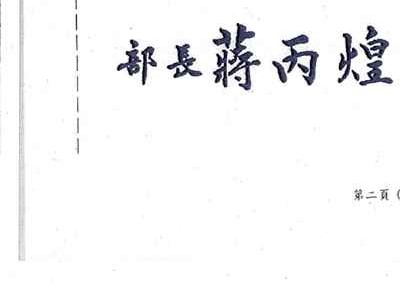 部長蔣丙煌
第二頁（